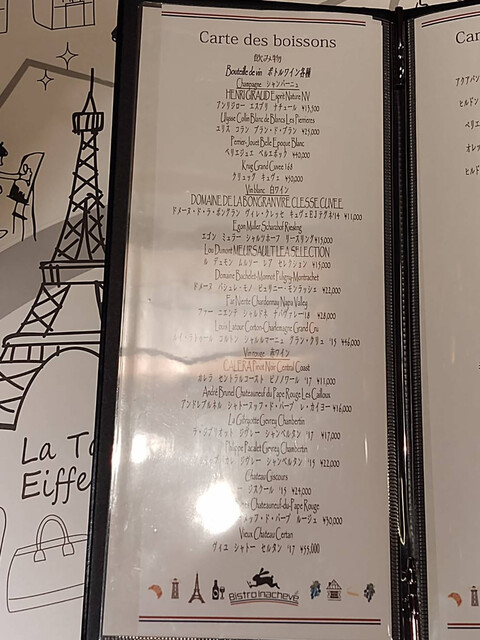 Carte des boissons
飲み物
Bouteille de vin ボトルワイン各種
Champagne シャンパーニュ
HENRI GIRAUD Esprit Nature NV
アンリジロー エスプリ ナチュール ¥15,500
Ulysse Collin Blanc de Blancs Les Pierrieres
ユリス コラン ブラン・ド・ブラン ¥25,000
Perrier-Jouet Belle Epoque Blanc
ペリエジュエ ベルエポック ¥40,000
Krug Grand Cuvee 168
クリュッグ キュヴェ ¥50,000
Vin blanc 白ワイン
DOMAINE DE LA BONGRAN VIRE CLESSE CUVEE
ドメーヌ・ド・ラ・ボングラン ヴィレ・クレッセ キュヴェ ¥11,000
Egon Muller Scharzhof Riesling
エゴン ミュラー シャルツホーフ リースリング ¥15,000
Lou Dumont MEURSAULT LEA SELECTION
ル デュモン ムルソー レア セレクション ¥19,000
Domaine Bachelet-Monnot Puligny-Montrachet
ドメーヌ バシュレ・モノ ピュリニー・モンラッシェ ¥22,000
Far Niente Chardonnay Napa Valley
ファー ニエンテ シャルドネ ナパヴァレー ¥28,000
Louis Latour Corton-Charlemagne Grand Cru
コルトン シャルルマーニュ グラン・クリュ ¥46,000
Vin rouge 赤ワイン
CALERA Pinot Noir Central Coast
カレラ セントラルコースト ピノノワール '17 ¥11,000
André Brunel Chateauneuf du Pape Rouge Les Cailloux
アンドレブルネル シャトーヌッフ・ド・パープ レ・カイヨー ¥16,000
La Gibryotte Gevrey Chambertin
ラ・ジブリオット ジヴレー シャンベルタン '17 ¥17,000
Philippe Pacalet Gevrey Chambertin
カレ ジヴレー シャンベルタン '19 ¥22,000
Chateau Giscours
ジスクール '15 ¥24,000
Chateauneuf-du-Pape Rouge
ッフ・ド・パープ ルージュ ¥30,000
Vieux Chateau Certan
ヴィユ シャトー セルタン '17 ¥55,000
Bistro Inachevé
La To
Eiffe
Car
アクアパン
ヒルドン
ペリエ
オレ
ヒルド